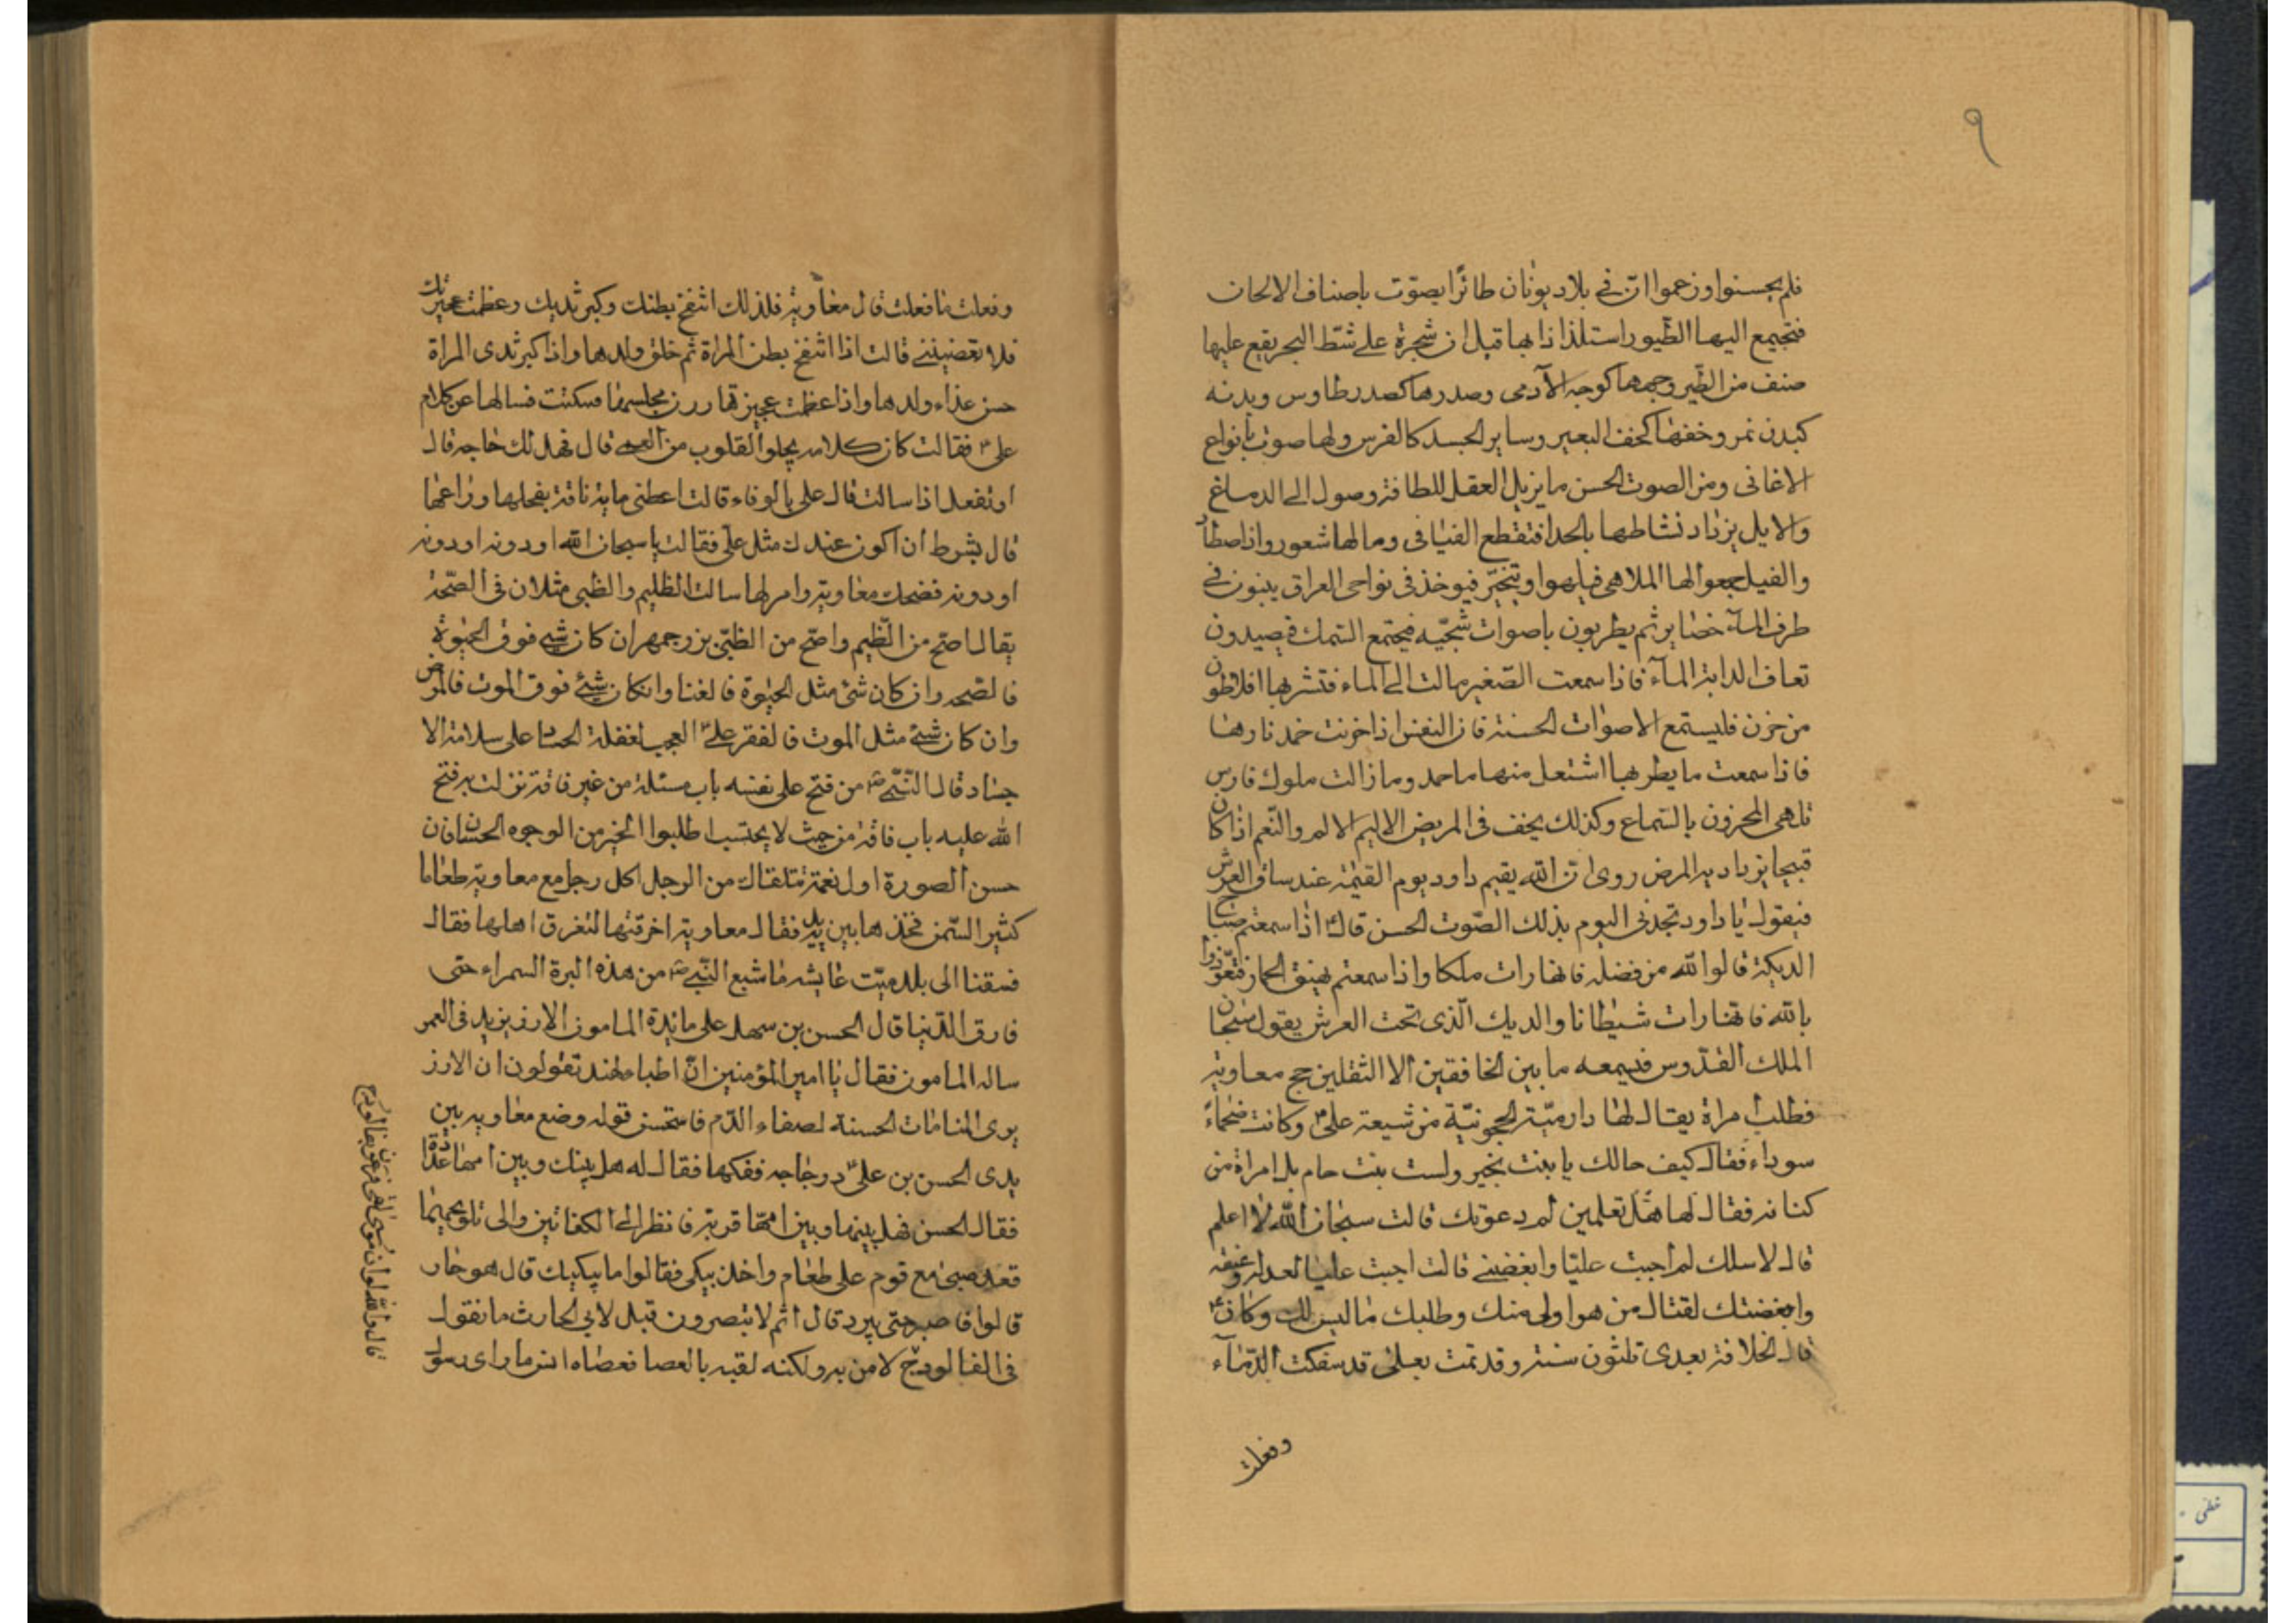 ٩
فلم يحسنوا وزعموا انّ في بلاد يونان طائرا يصوّت باصناف الالحان
فتجيمع اليها الطّيور استلذاذا بها قيل ان شجرة على شطّ البحر يقع عليها
صنف من الطّير وجهها كوجه الآدمى وصدرها كصدر طاوس وبدنه
كبدن نمر وخفها كخف البعير وساير الجسد كالفرس ولها صوت بانواع
الاغانى ومن الصوت الحسن ما يزيل العقل للطافة وصول الى الدماغ
والابل يزداد نشاطها بالحدا فتقطع الفيافى ومالها شعور واذا صطاد
والفيل جمعوا لها الملاهى فيلهوا ويتخيّر فيوخذ فى نواحى العراق يبنون فى
طرف المآء خضاير ثم يطربون باصوات شجيّه فيجتمع السّمك فيصيدون
تعاف الدابة المآء فاذا سمعت الصّفير مالت الى الماء فتشربها افلاطون
من حزن فليستمع الاصوات الحسنة فان النفس اذا حزنت خمد نارها
فاذا سمعت ما يطربها اشتعل منها ما خمد وما زالت ملوك فارس
تلهى المحزون بالسّماع وكذلك يخف فى المريض الاليم الالم والنّغم اذا كان
قبيحا يزداد به المرض روى انّ الله يقيم داود يوم القيمة عند ساق العرش
فيقول يا داود تجدنى اليوم بذلك الصّوت الحسن قال اذا سمعتم صياح
الديكة قالوا الله من فضله فانها رات ملكا واذا سمعتم نهيق الحمار فتعّوذوا
بالله فانها رات شيطانا والديك الّذى تحت العرش يقول سبحان
الملك القدّوس فيسمعه ما بين الخافقين الا الثقلين حج معاوية
فطلب امراة يقال لها دارميّة الحجونيّة من شيعة على وكانت ضخماء
سوداء فقال كيف حالك يا بنت بخير ولست بنت حام بل امراة من
كنانه فقال لها هل تعلمين لم دعوتك قالت سبحان الله لا اعلم
قال لاسلك لم اجبت عليّا وابغضتنى قالت اجبت عليا لعدله
وابغضتك لقتال من هو اولى منك وطلبك ما ليس لك وكان
قال الخلافة بعدى ثلثون سنة وقد تمت بعلى قد سفكت الدّمآء
وفعلت
وفعلت ما فعلت قال معاوية فلذلك انتفخ بطنك وكبر ثديك وعظمت عجيزتك
فلا تغضبينى قالت اذا انتفخ بطن المراة تم خلق ولدها واذا كبر ثدى المراة
حسن غذاء ولدها واذا عظمت عجيزتها رزن مجلسها فسكنت فسالها عن كلام
على فقالت كان كلامه يجلو القلوب من العمى قال فهل لك حاجة قال
اوتفعل اذا سالت قال على بالوفاء قالت اعطنى ماية ناقة بفحلها وراعيها
قال بشرط ان اكون عندك مثل على فقالت يا سبحان الله او دونه او دونه
او دونه فضحك معاوية وامر لها سالت الظليم والظبى مثلان فى الصّحة
يقال اصّح من الظّليم واصّح من الظبّى بزرجمهر ان كان شئ فوق الحيوة
فالصّحه وان كان شئ مثل الحيوة فالغنا وانكان شئ فوق الموت فالمرض
وان كان شئ مثل الموت فالفقر علىّ العجب لغفلة الحساد على سلامة الا
جساد قال النّبى من فتح على نفسه باب مسئلة من غير فاقة نزلت به فتح
الله عليه باب فاقة من حيث لا يحتسب اطلبوا الخير من الوجوه الحسان فان
حسن الصورة اول نعمة تلقاك من الرجل اكل رجل مع معاوية طعاما
كثير السّمن فخذها بين يديه فقال معاوية اخرقتها لتغرق اهلها فقال
فسقنا الى بلد ميّت عايشه ما شبع النّبى من هذه البرة السمراء حتى
فارق الدّنيا قال الحسن بن سهل على مائدة المامون الارز يزيد فى العمر
ساله المامون فقال يا امير المؤمنين انّ اطباء الهند تقولون ان الارز
يرى المنامات الحسنة لصفاء الدّم فاستحسن قوله وضع معاويه بين
يدى الحسن بن علىّ دجاجه ففكها فقال له هل بينك وبين امها عداوة
فقال الحسن فهل بينها وبين امّها قربة فانظر الى الكفاتين والى تلويحيهما
قعد صبى مع قوم على طعام واخذ يبكى فقالوا ما يبكيك قال هو حار
قالوا فاصبر حتى يبرد قال انتم لا تبصرون قيل لابى الحارث ما تقول
فى الفالوذج لامن به ولكنه لقيه بالعصا فعصاه انس ما راى رسول
قال والله لو ان موسى لقى فرعون بفالوذج
خطى -